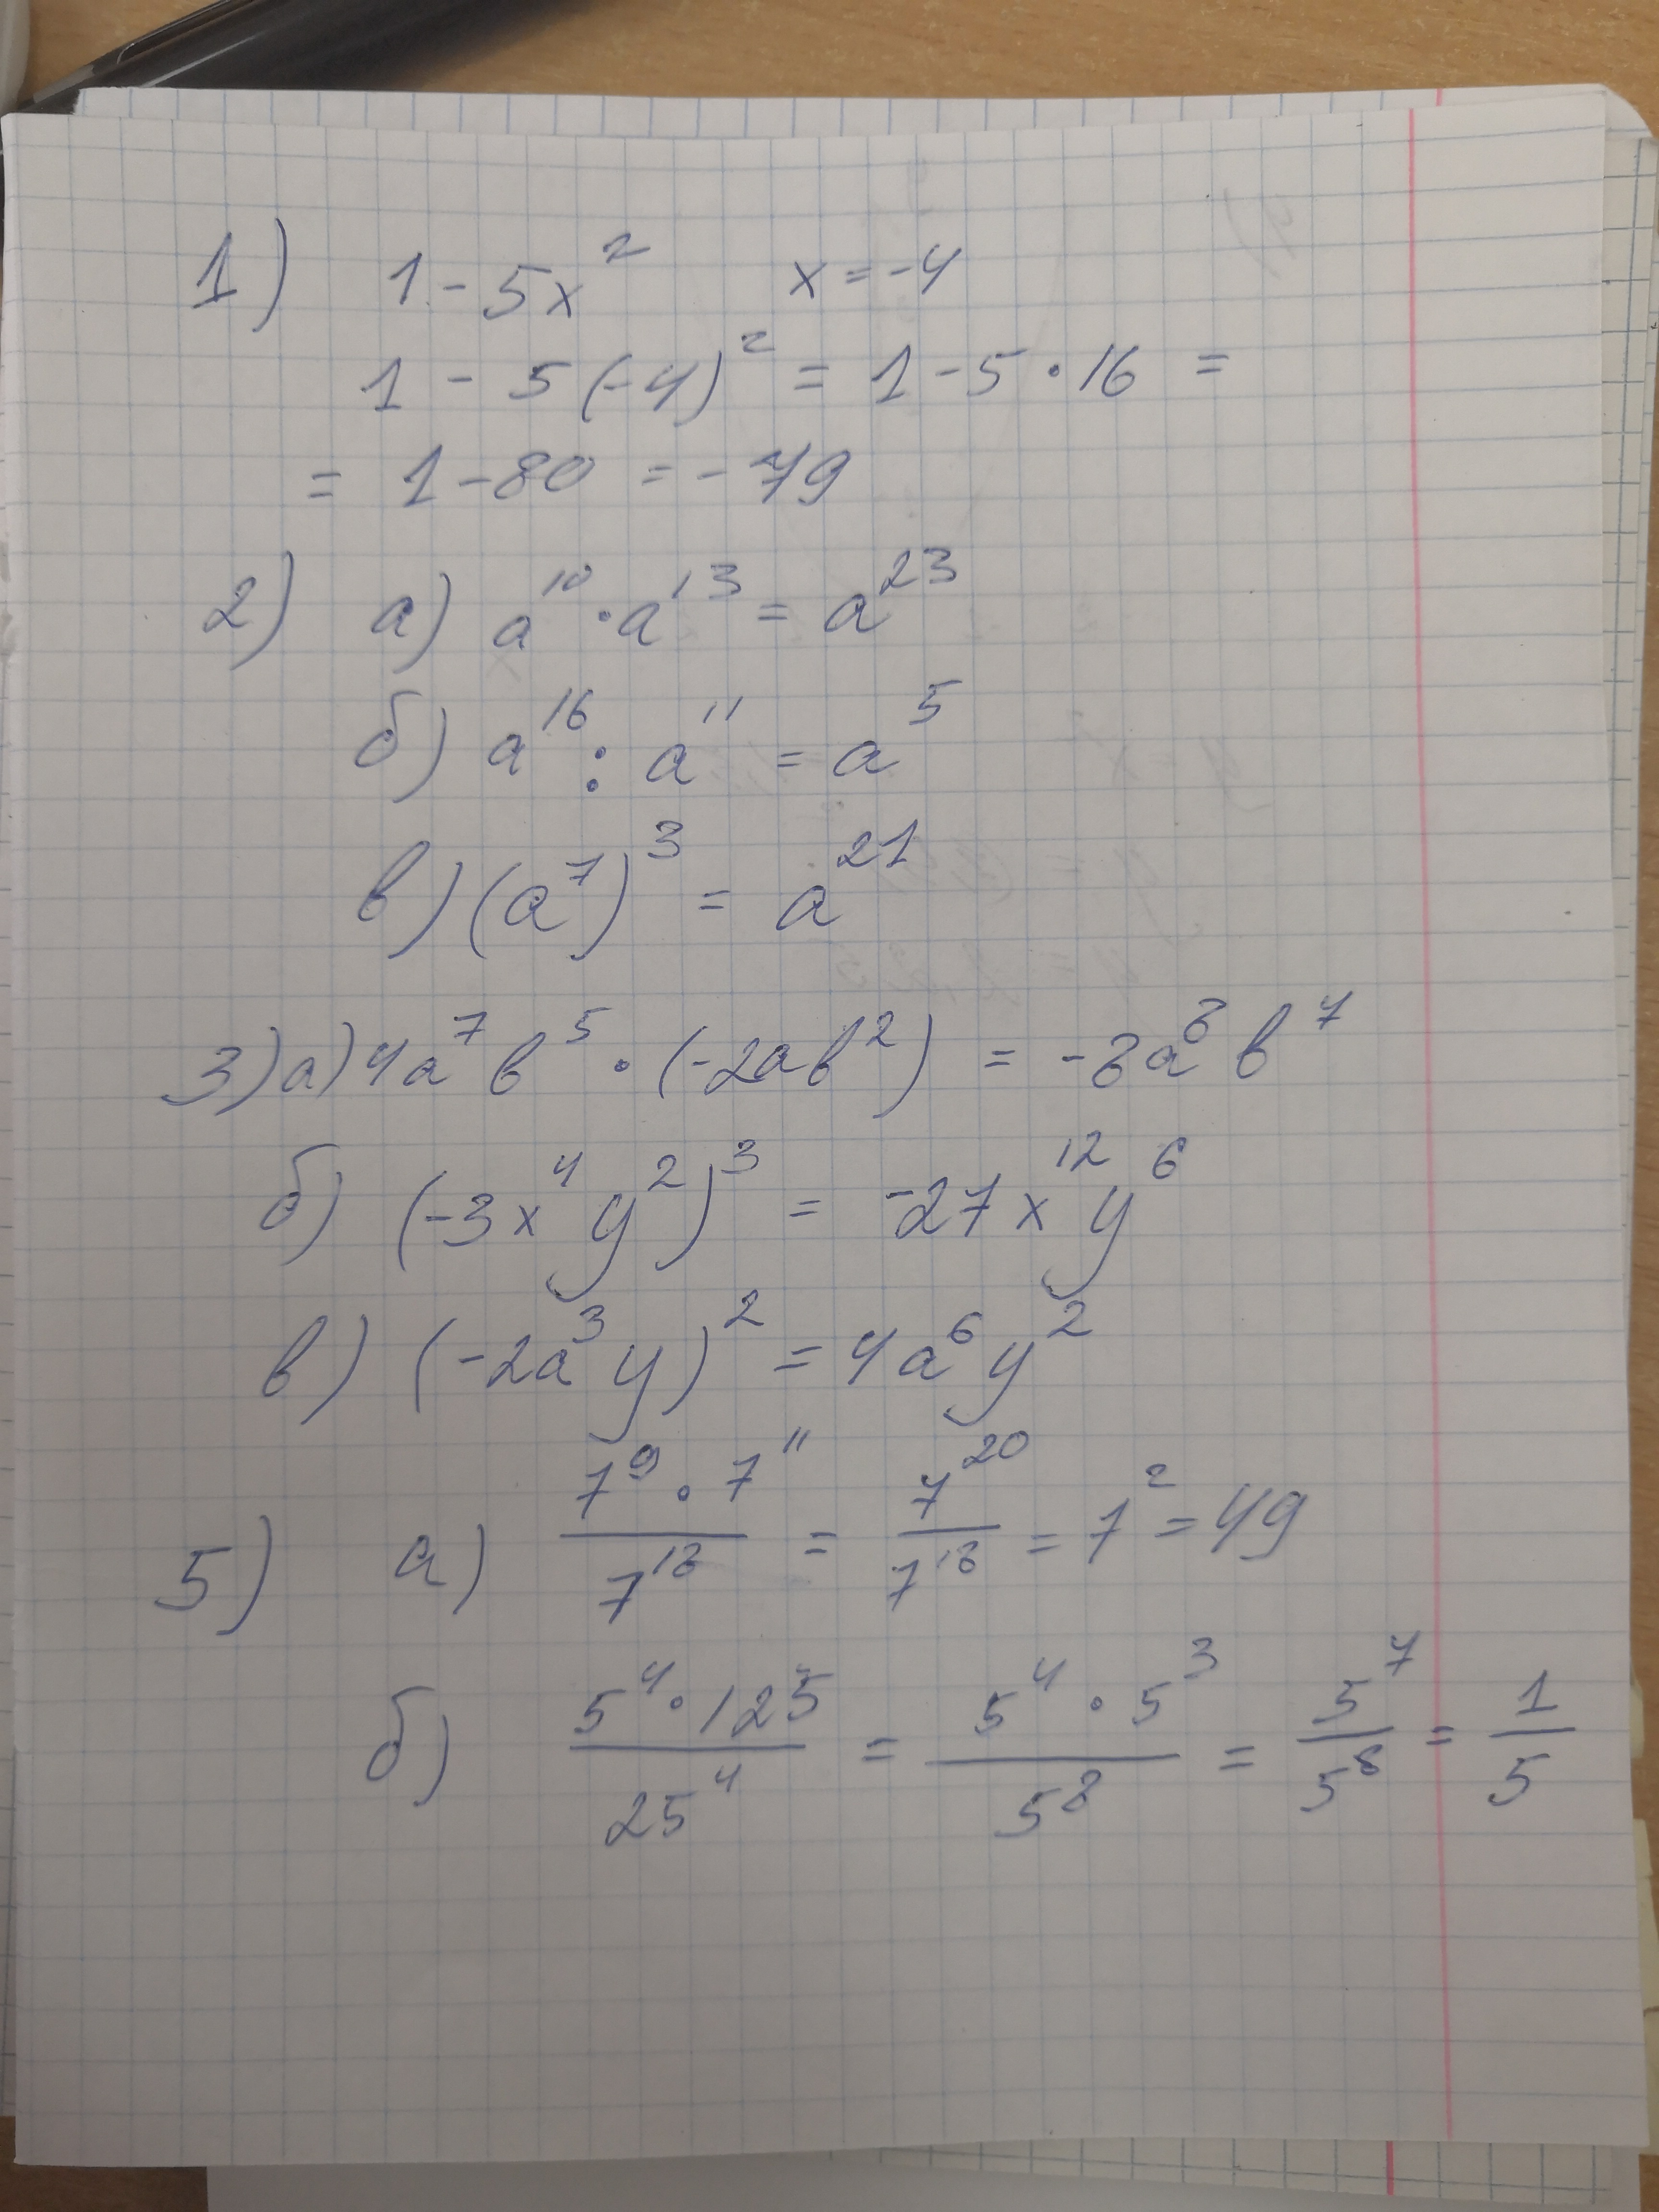 1) 1 - 5x² x = -4
1 - 5(-4)² = 1 - 5 · 16 =
= 1 - 80 = -79
2) а) a¹⁰ · a¹³ = a²³
б) a¹⁶ : a¹¹ = a⁵
в) (a⁷)³ = a²¹
3) а) 4a⁷b⁵ · (-2ab²) = -8a⁸b⁷
б) (-3x⁴y²)³ = -27x¹²y⁶
в) (-2a³y)² = 4a⁶y²
5) а) (7⁹ · 7¹¹)/7¹⁸ = 7²⁰/7¹⁸ = 7² = 49
б) (5⁴ · 125)/25⁴ = (5⁴ · 5³)/5⁸ = 5⁷/5⁸ = 1/5